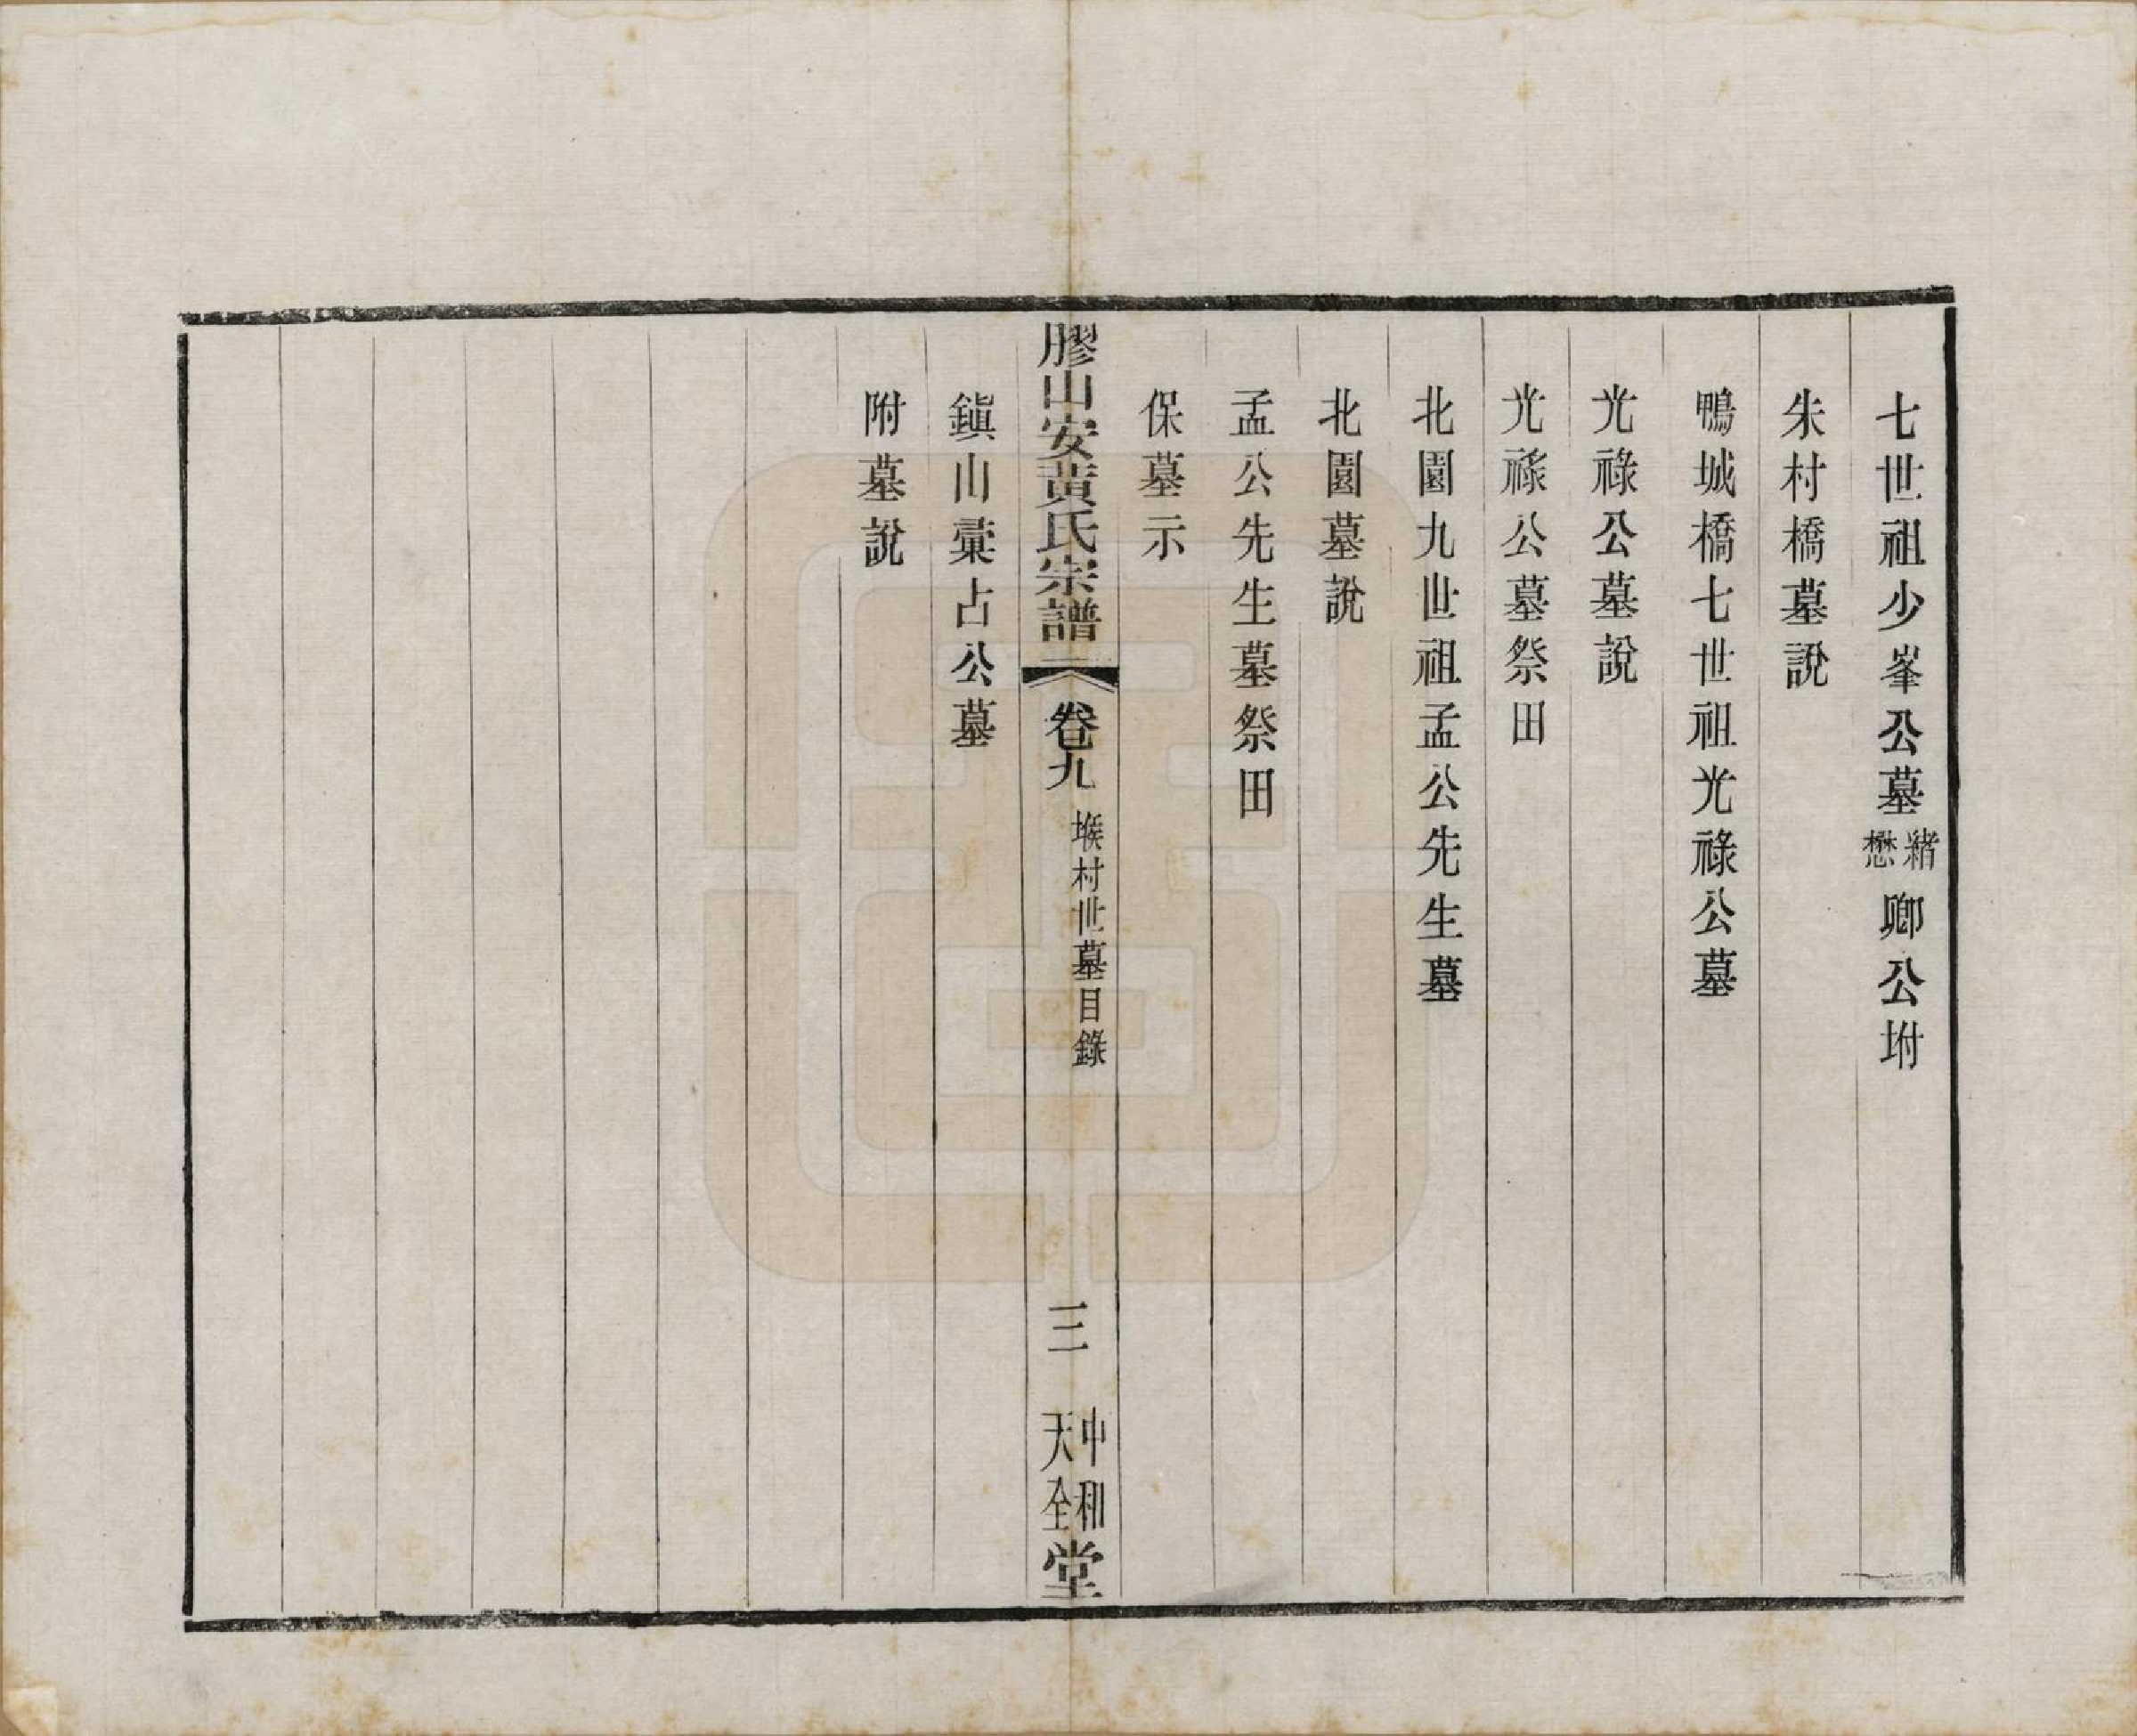 七世祖少峯公墓緒懋卿公坿
朱村橋墓說
鴨城橋七世祖光祿公墓
光祿公墓說
光祿公墓祭田
北園九世祖孟公先生墓
北園墓說
孟公先生墓祭田
保墓示
膠山安黃氏宗譜 卷九 堠村世墓目錄 三 中和天全堂
鎭山橐占公墓
附墓說